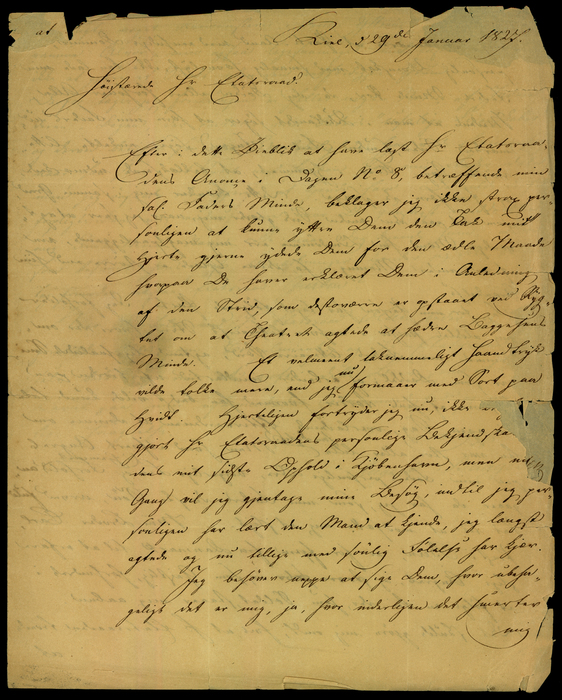 at
Kiel, d 29de Januar 1827.
Høistærede Hr Etatsraad!
Efter i dette Øieblik at have læst Hr Etatsraa-
dens Anonce i Dagen No 8, betræffende min
sal. Faders Minde, beklager jeg ikke strax per-
sonligen at kunne yttre Dem den Tak mit
Hjerte gjerne ydede Dem for den ædle Maade
hvorpaa De haver erklæret Dem i Anledning
af den Strid, som desto værre er opstaaet ved Ryg-
tet om at Theatret agtede at hædre Baggesens
Minde. Et velmeent taknemmeligt Haandtryk
vilde tolke mere, end jeg nu formaaer med Sort paa
Hvidt. Hjerteligen fortryder jeg nu, ikke
gjort Hr Etatsraadens personlige Bekjendtska
dens mit sidste Ophold i Kjøbenhavn, men
Gang vil jeg gjentage mine Besøg, indtil jeg per-
sonligen har lært den Mand at kjende, jeg længst
agtede og nu tillige med sönlig Følelse har kjær.
Jeg behøver neppe at sige Dem, hvor ubeha-
geligt det er mig, ja, hvor inderligen det smerter
mig